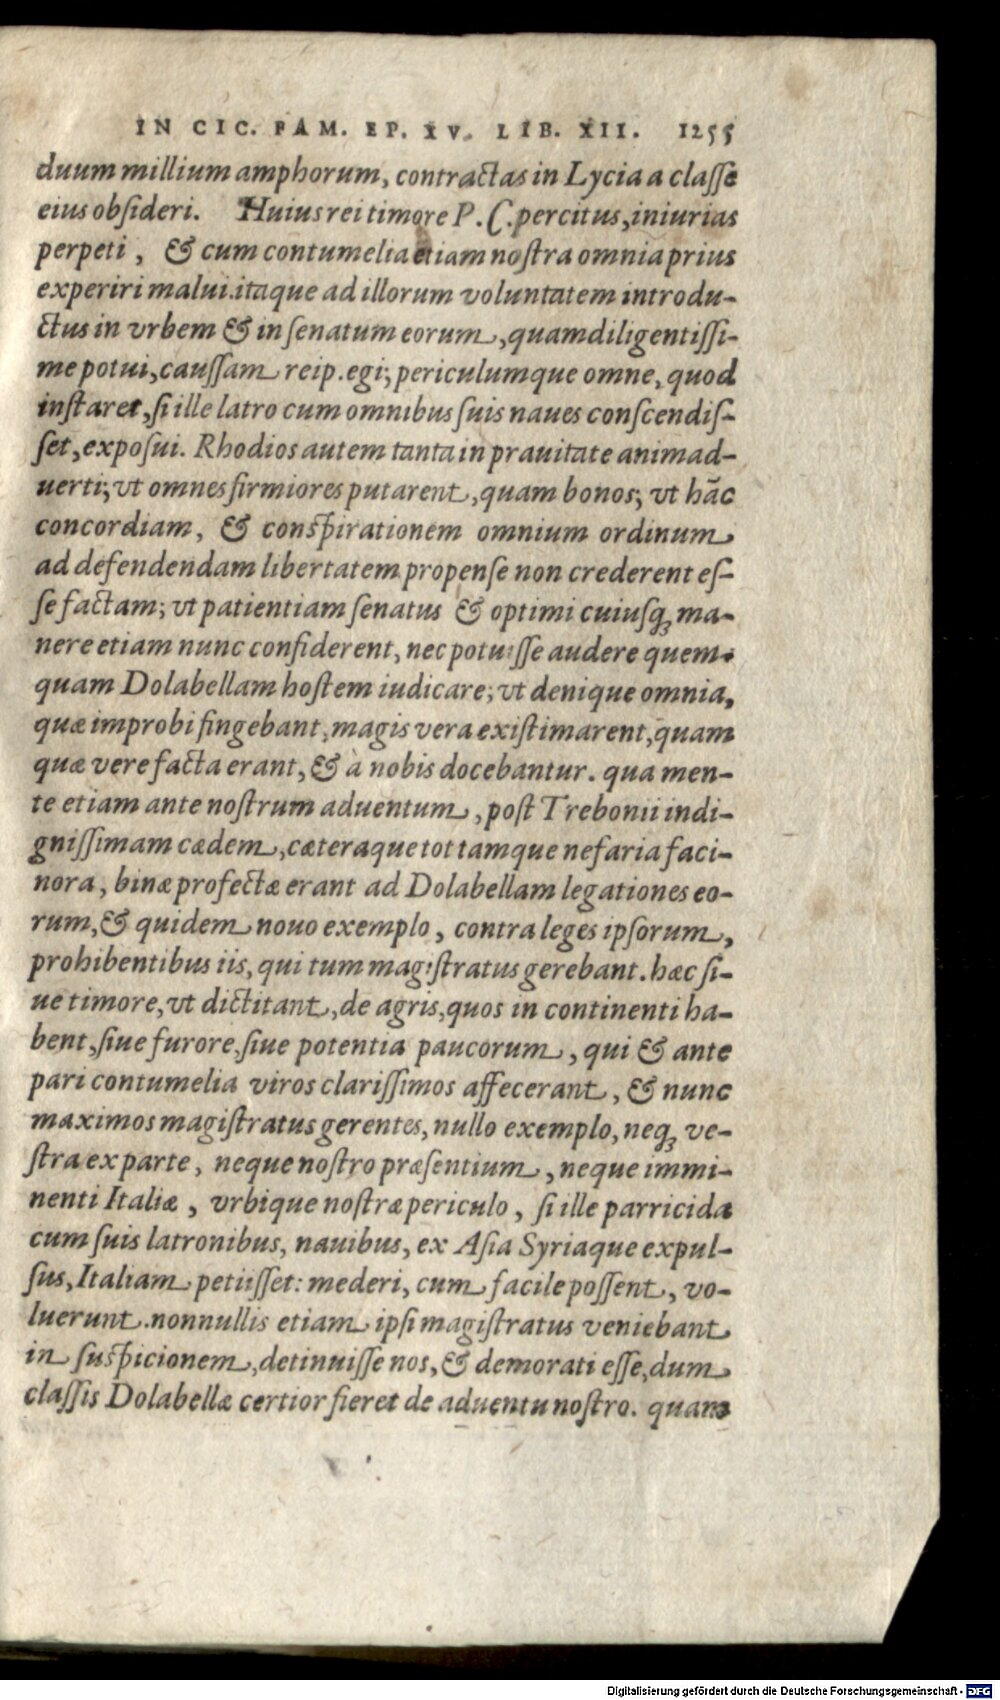 IN CIC. FAM. EP. XV. LIB. XII. 1255
duum millium amphorum, contractas in Lycia a classe
eius obsideri. Huius rei timore P. C. percitus, iniurias
perpeti, & cum contumelia etiam nostra omnia prius
experiri malui. itaque ad illorum voluntatem introdu-
ctus in vrbem & in senatum eorum, quam diligentissi-
me potui, caussam reip. egi; periculumque omne, quod
instaret, si ille latro cum omnibus suis naues conscendis-
set, exposui. Rhodios autem tanta in prauitate animad-
uerti; vt omnes firmiores putarent, quam bonos; vt hãc
concordiam, & conspirationem omnium ordinum
ad defendendam libertatem propense non crederent es-
se factam; vt patientiam senatus & optimi cuiusq; ma-
nere etiam nunc confiderent, nec potuisse audere quem-
quam Dolabellam hostem iudicare; vt denique omnia,
quæ improbi fingebant, magis vera existimarent, quam
quæ vere facta erant, & à nobis docebantur. qua men-
te etiam ante nostrum aduentum, post Trebonii indi-
gnissimam cædem, cæteraque tot tamque nefaria faci-
nora, binæ profectæ erant ad Dolabellam legationes eo-
rum, & quidem nouo exemplo, contra leges ipsorum,
prohibentibus iis, qui tum magistratus gerebant. hæc si-
ue timore, vt dictitant, de agris, quos in continenti ha-
bent, siue furore, siue potentia paucorum, qui & ante
pari contumelia viros clarissimos affecerant, & nunc
maximos magistratus gerentes, nullo exemplo, neq; ve-
stra ex parte, neque nostro præsentium, neque immi-
nenti Italiæ, vrbique nostræ periculo, si ille parricida
cum suis latronibus, nauibus, ex Asia Syriaque expul-
sus, Italiam petiisset: mederi, cum facile possent, vo-
luerunt. nonnullis etiam ipsi magistratus veniebant
in suspicionem, detinuisse nos, & demorati esse, dum
classis Dolabellæ certior fieret de aduentu nostro. quam
Digitalisierung gefördert durch die Deutsche Forschungsgemeinschaft - DFG